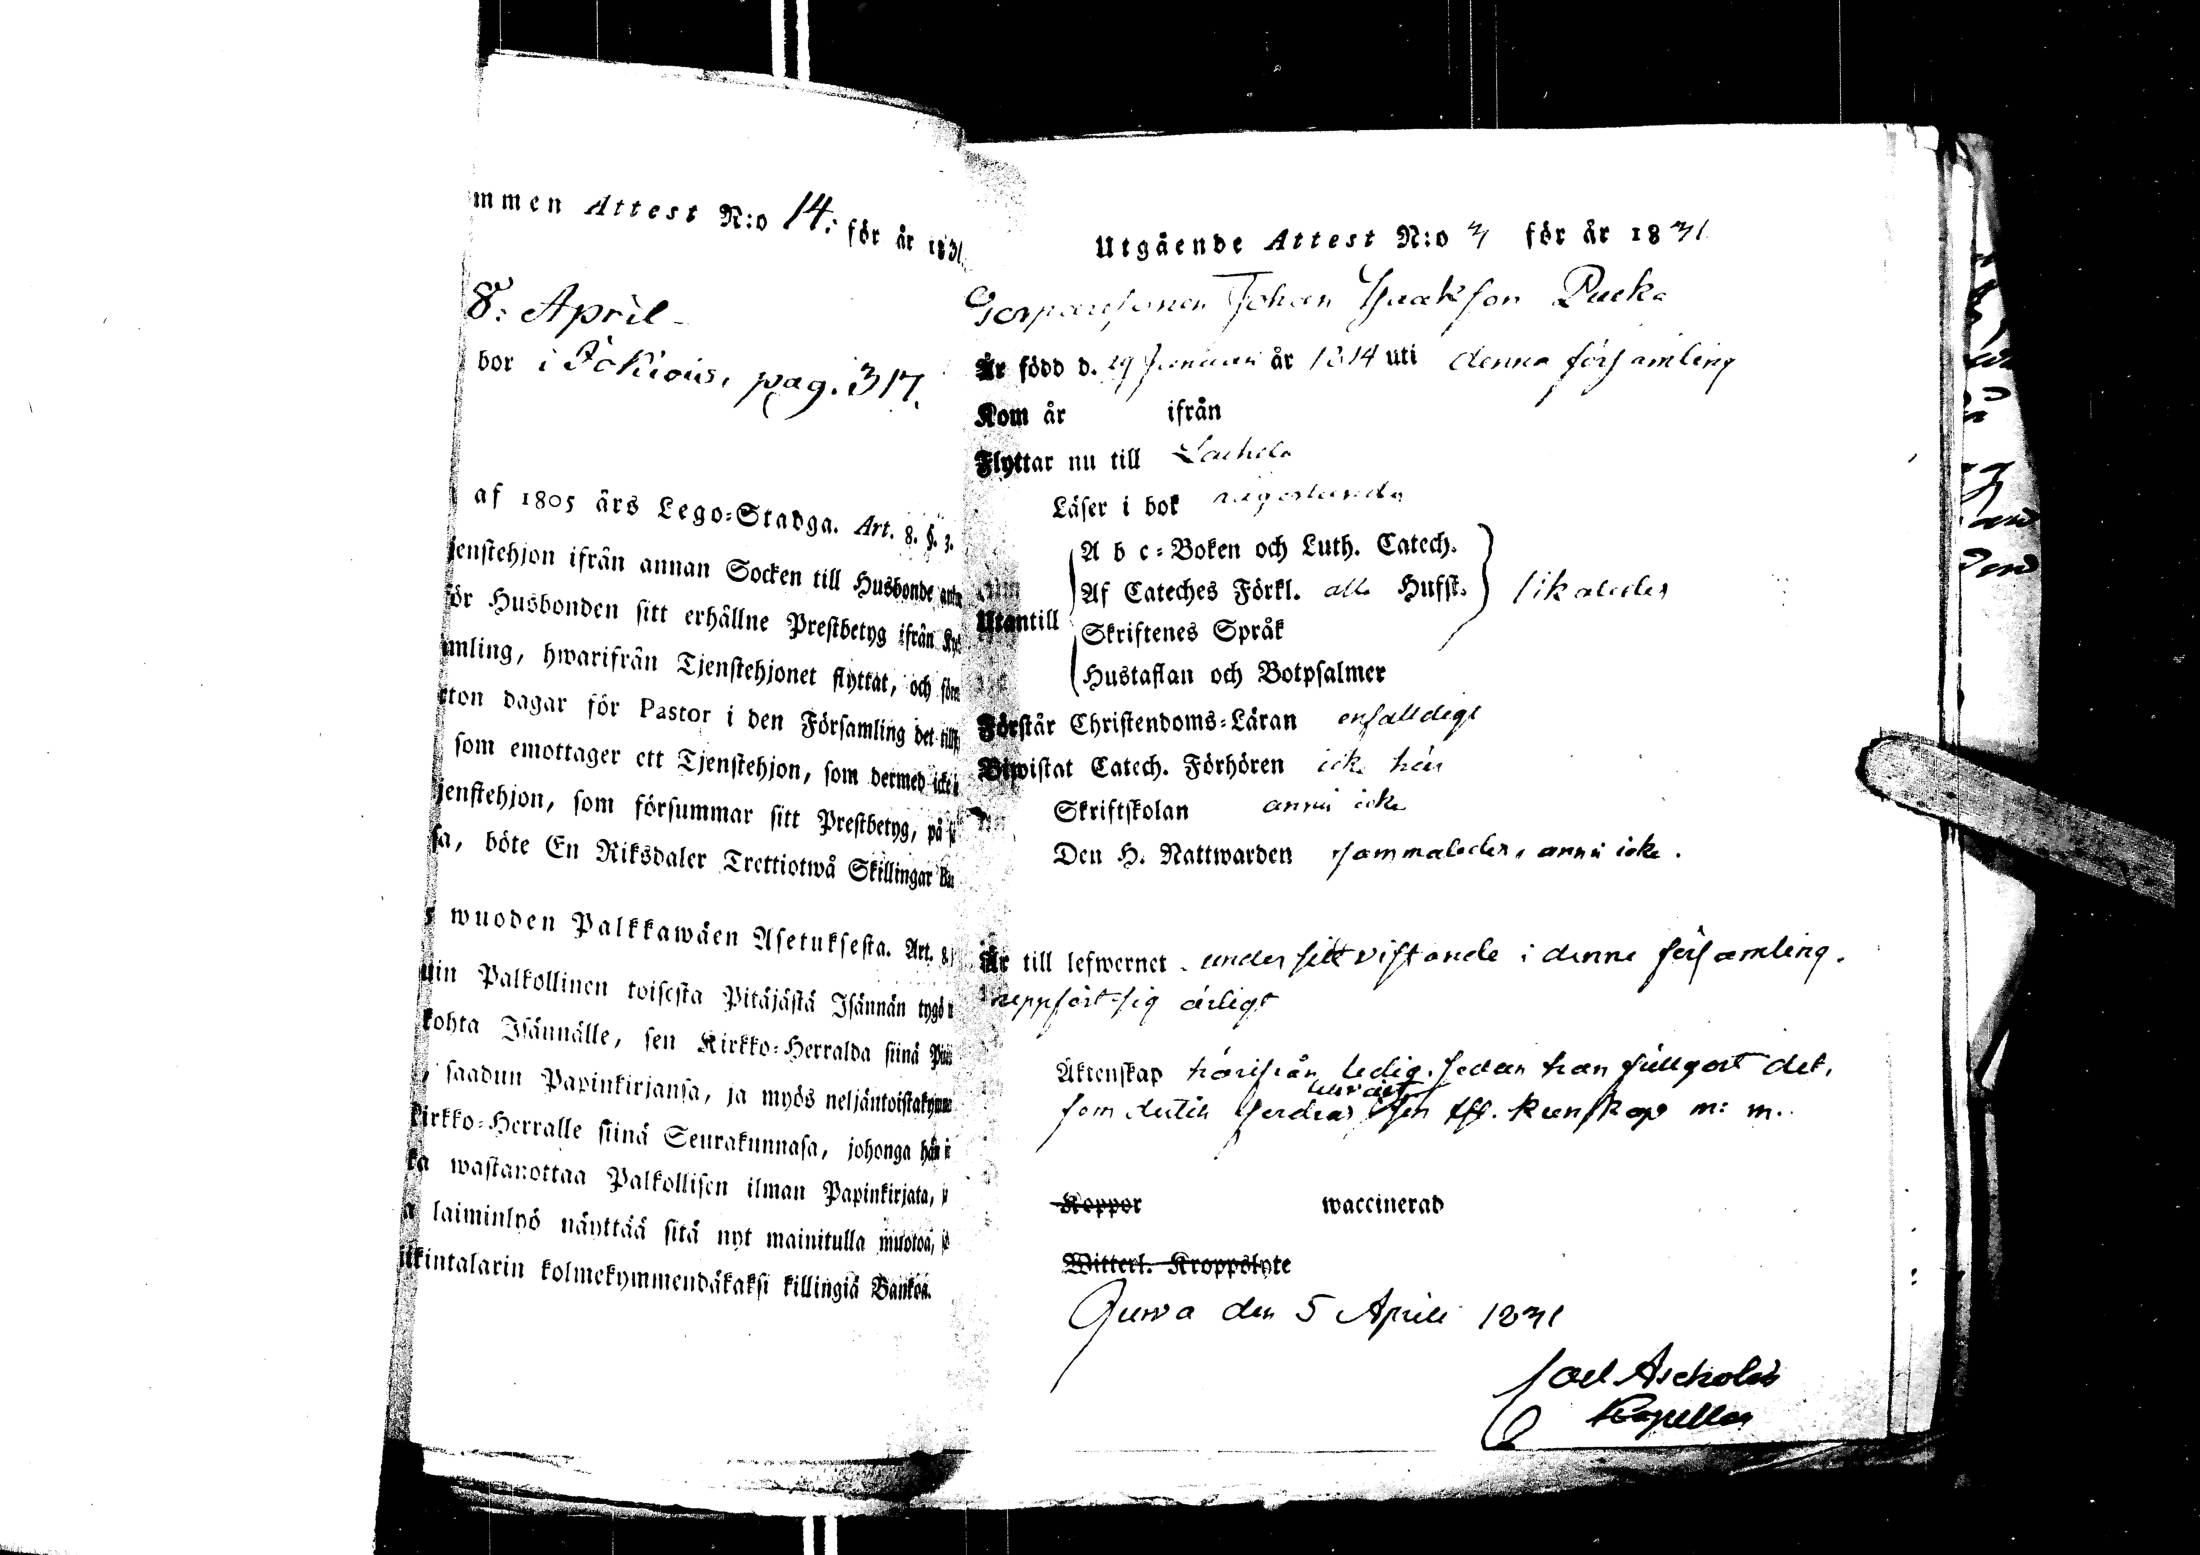 mmen Attest N:o 14. för år 1831.
8: April
bor i Jokiois, pag. 317.
af 1805 års Lego-Stadga. Art. 8. §. 3.
jenstehjon ifrån annan Socken till Husbonde
för Husbonden sitt erhållne Prestbetyg ifrån
mling, hwarifrån Tjenstehjonet flyttat, och
ton dagar för Pastor i den Församling det
som emottager ett Tjenstehjon, som dermed icke
jenstehjon, som försummar sitt Prestbetyg, på
sa, böte En Riksdaler Trettiotwå Skillingar
wuoden Palkkawäen Asetuksesta. Art. 8.
uin Palkollinen toisesta Pitäjästä Isännän tygö
kohta Isännälle, sen Kirkko-Herralda siinä
saadun Papinkirjansa, ja myös neljäntoistakymme
kirkko-Herralle siinä Seurakunnasa, johonga hän
ka wastanottaa Palkollisen ilman Papinkirjata,
a laiminlyö näyttää sitä nyt mainitulla muotoa,
ikintalarin kolmekymmendäkaksi killingiä Bankoa.
Utgående Attest N:o 3 för år 1831
Johan Isaksson Pucka
Är född d. 29 Januari år 1814 uti denna församling
Kom år ifrån
Flyttar nu till
Läser i bok någorlunda
A b c-Boken och Luth. Catech.
Af Cateches Förkl. alla Hufst. likaledes
Utantill
Skriftenes Språk
Hustaflan och Botpsalmer
Förstår Christendoms-Läran enfaldigt
Biwistat Catech. Förhören icke här
Skriftskolan ännu icke
Den H. Nattwarden sammaledes, ännu icke.
Är till lefwernet under sitt vistande i denna församling.
uppfört sig ärligt
Äktenskap härifrån ledig, sedan han fullgort det,
som kunskap m: m.
Koppor waccinerad
Witterl. Kroppslyte
Juva den 5 April 1831
Joel Ascholin
Kapellan